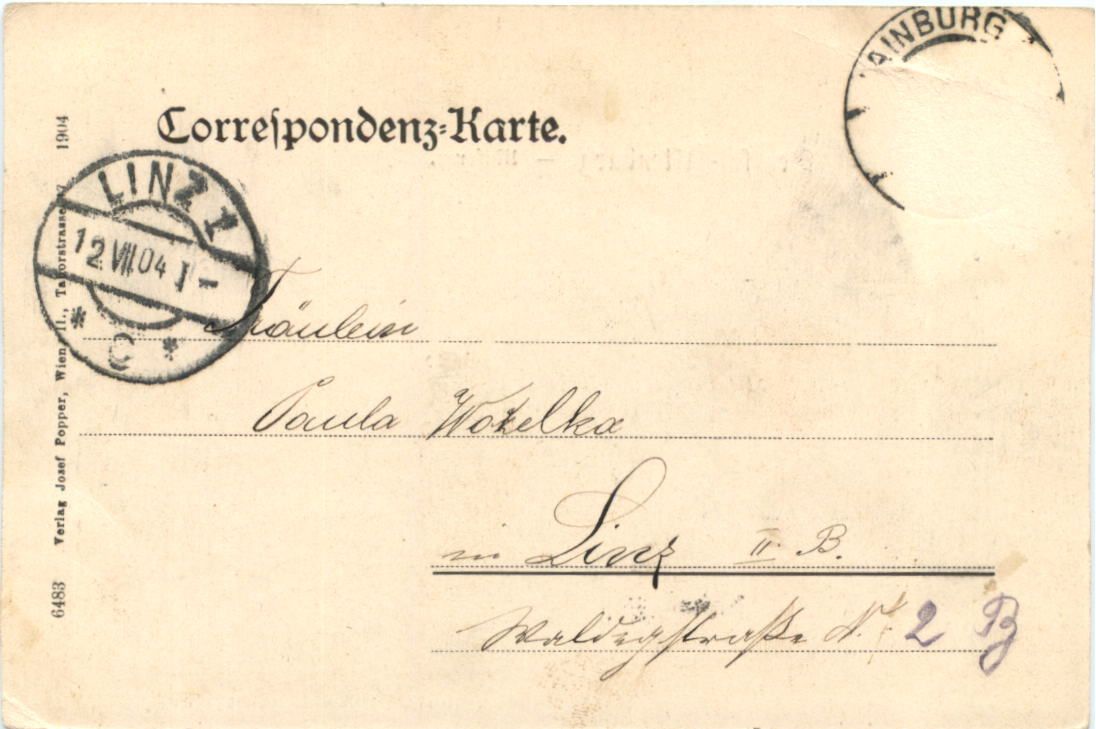 AINBURG
Correspondenz-Karte.
LINZ 1
12 VII 04 I -
* C *
Fräulein
Paula Wokelka
in Linz II. B.
Waldegstraße N. 2 B
6483 Verlag Josef Popper, Wien II., Taborstrasse 1904